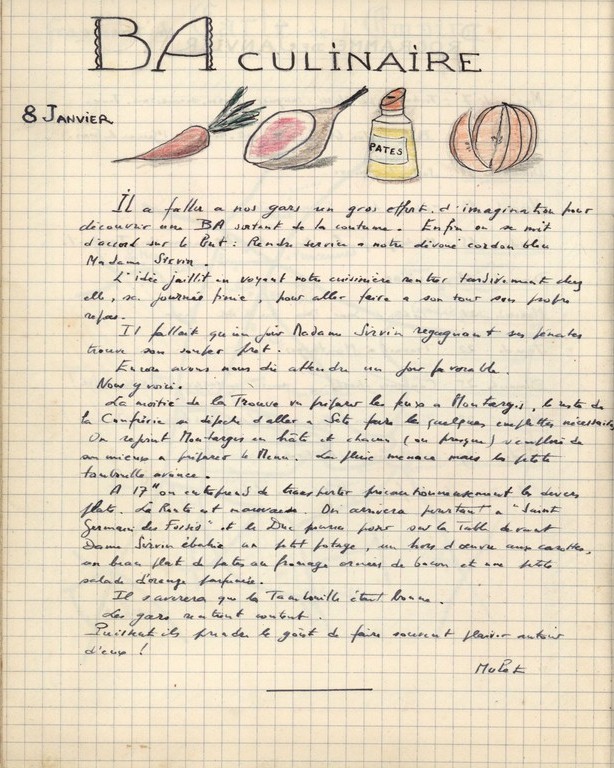 BA CULINAIRE
8 JANVIER
PATES
Il a fallu a nos gars un gros effort d'imagination pour
découvrir une BA sortant de la coutume. Enfin on se mit
d'accord sur le but : Rendre service a notre dévoué cordon bleu
Madame Sirvin.
L'idée jaillit en voyant notre cuisinière rentrer tardivement chez
elle, sa journée finie, pour aller faire a son tour son propre
repas.
Il fallait qu'un jour Madame Sirvin regagnant ses pénates
trouve son souper prêt.
Encore avons nous dû attendre un jour favorable.
Nous y voici.
La moitié de la Trouve va préparer les feux a Montargis, le reste de
la Confrérie se dépêche d'aller a Sète faire les quelques emplettes nécessaires
On rejoint Montargis en hâte et chacun (ou presque) s'emploie de
son mieux a préparer le Menu. La pluie menace mais la petite
tambouille avance.
A 17H on entreprend de transporter précautionneusement les divers
plats. La Route est mauvaise. On arrivera pourtant a "Saint
Germain des Fossés" et le Duc pourra poser sur la Table devant
Dame Sirvin ébahie un petit potage, un hors d'œuvre aux carottes,
un beau plat de pates au fromage ornées de bacon et une petite
salade d'orange parfumée.
Il s'avérera que la Tambouille était bonne.
Les gars rentrent content.
Puissent ils prendre le goût de faire souvent plaisir autour
d'eux !